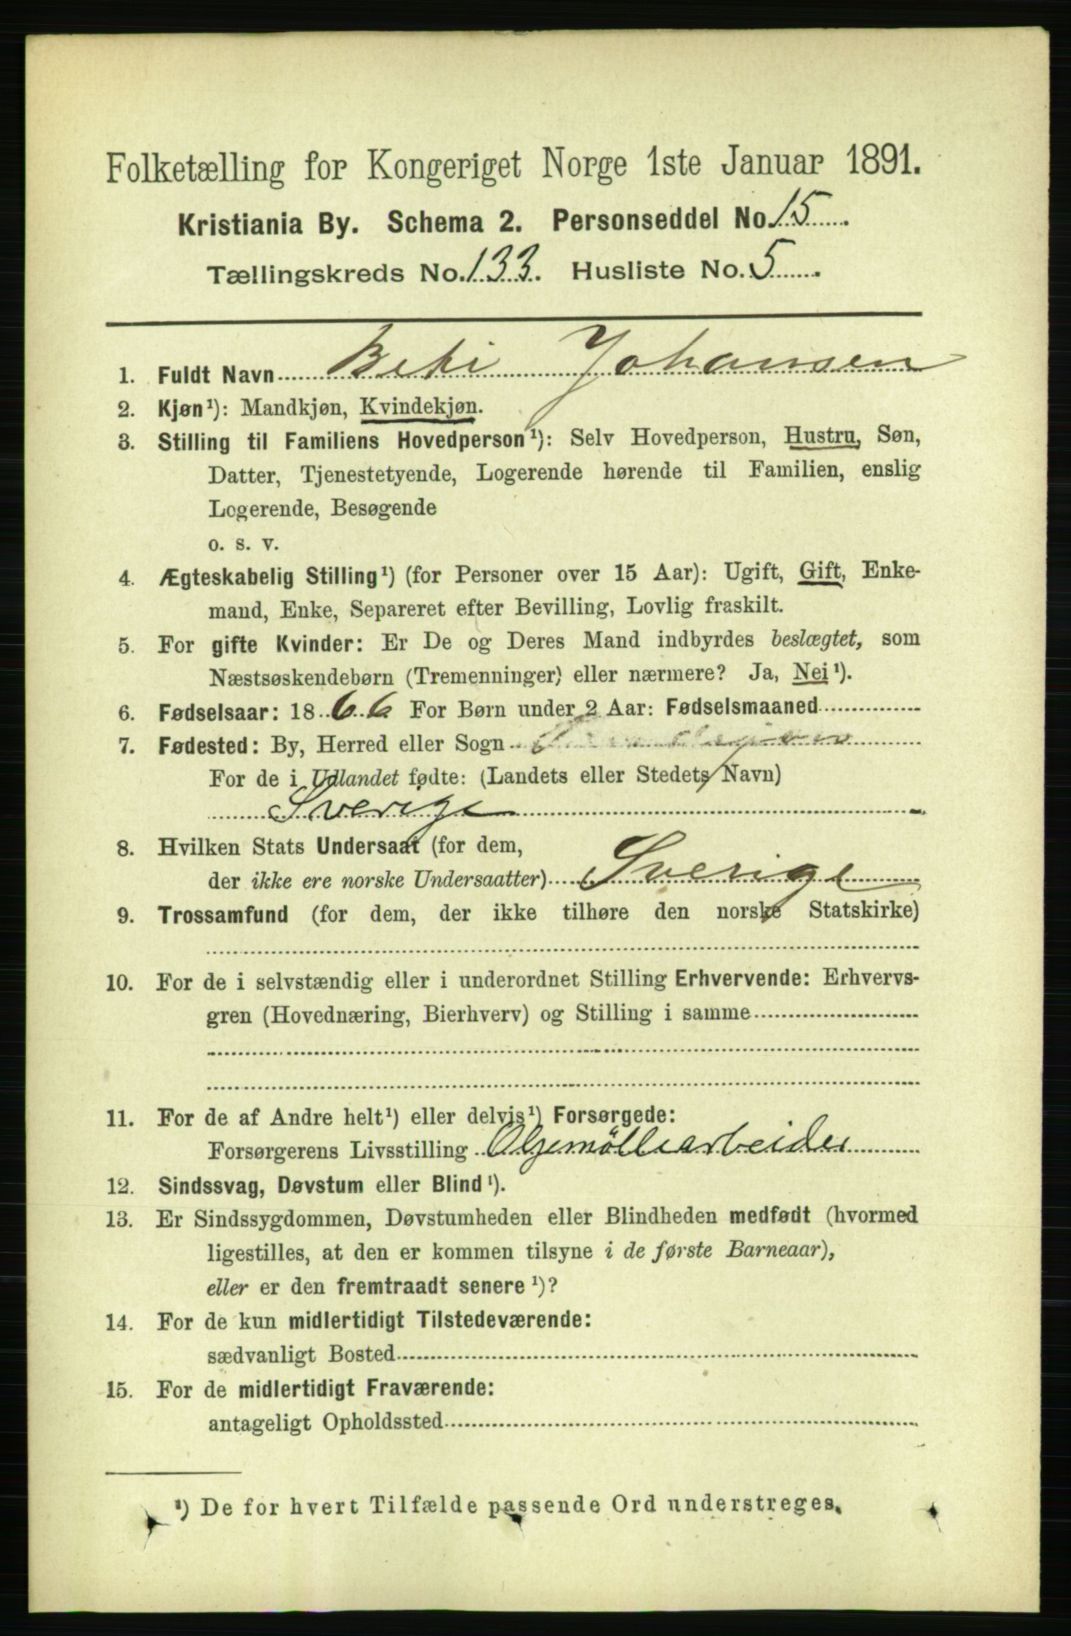 Folketælling for Kongeriget Norge 1ste Januar 1891.
Kristiania By. Schema 2. Personseddel No. 15
Tællingskreds No. 133. Husliste No. 5
1. Fuldt Navn Johansen
2. Kjøn¹): Mandkjøn, Kvindekjøn.
3. Stilling til Familiens Hovedperson¹): Selv Hovedperson, Hustru, Søn,
Datter, Tjenestetyende, Logerende hørende til Familien, enslig
Logerende, Besøgende
o. s. v.
4. Ægteskabelig Stilling¹) (for Personer over 15 Aar): Ugift, Gift, Enke-
mand, Enke, Separeret efter Bevilling, Lovlig fraskilt.
5. For gifte Kvinder: Er De og Deres Mand indbyrdes beslægtet, som
Næstsøskendebørn (Tremenninger) eller nærmere? Ja, Nei¹).
6. Fødselsaar: 1866 For Børn under 2 Aar: Fødselsmaaned
7. Fødested: By, Herred eller Sogn
For de i Udlandet fødte: (Landets eller Stedets Navn)
Sverige
8. Hvilken Stats Undersaat (for dem,
der ikke ere norske Undersaatter) Sverige
9. Trossamfund (for dem, der ikke tilhøre den norske Statskirke)
10. For de i selvstændig eller i underordnet Stilling Erhvervende: Erhvervs-
gren (Hovednæring, Bierhverv) og Stilling i samme
11. For de af Andre helt¹) eller delvis¹) Forsørgede:
Forsørgerens Livsstilling Oljemöllearbeider
12. Sindssvag, Døvstum eller Blind¹).
13. Er Sindssygdommen, Døvstumheden eller Blindheden medfødt (hvormed
ligestilles, at den er kommen tilsyne i de første Barneaar),
eller er den fremtraadt senere¹)?
14. For de kun midlertidigt Tilstedeværende:
sædvanligt Bosted
15. For de midlertidigt Fraværende:
antageligt Opholdssted
¹) De for hvert Tilfælde passende Ord understreges.